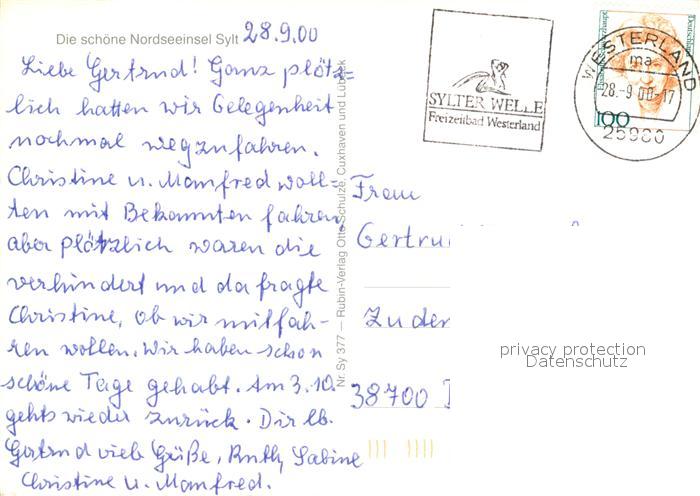 Die schöne Nordseeinsel Sylt 28.9.00
Liebe Gertrud! Ganz plötz=
lich hatten wir Gelegenheit
nochmal wegzufahren.
Christine u. Manfred woll=
ten mit Bekannten fahren,
aber plötzlich waren die
verhindert und da fragte
Christine, ob wir mitfah-
ren wollen. Wir haben schon
schöne Tage gehabt. Am 3.10.
gehts wieder zurück. Dir lb.
Gertrud viele Grüße, Ruth, Sabine
Christine u. Manfred.
Nr. Sy 377 — Rubin-Verlag Otto Schulze, Cuxhaven und Lübeck
SYLTER WELLE
Freizeitbad Westerland
WESTERLAND
ma
28.-9.00-17
25980
100
Frau
Gertru
Zu der
38700
privacy protection
Datenschutz